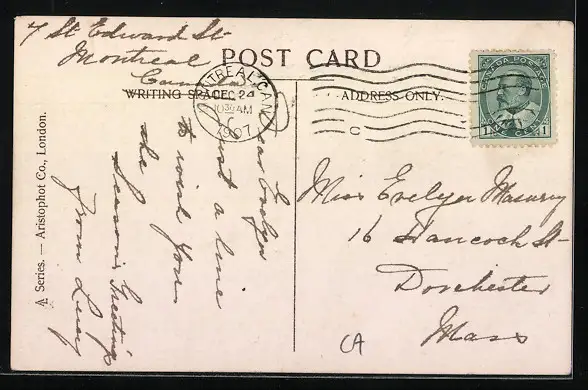 7 St Edward St
Montreal
Canada
POST CARD
WRITING SPACE
ADDRESS ONLY.
MONTREAL, CAN.
DEC 24
10 30 AM
C
1907
CANADA POSTAGE
1 CENT 1
Dear
Just a line
to wish you
the
Season's Greetings
From Lucy
Miss Evelyn
16 Hancock St
Dorchester
Mass
CA
A Series. — Aristophot Co., London.